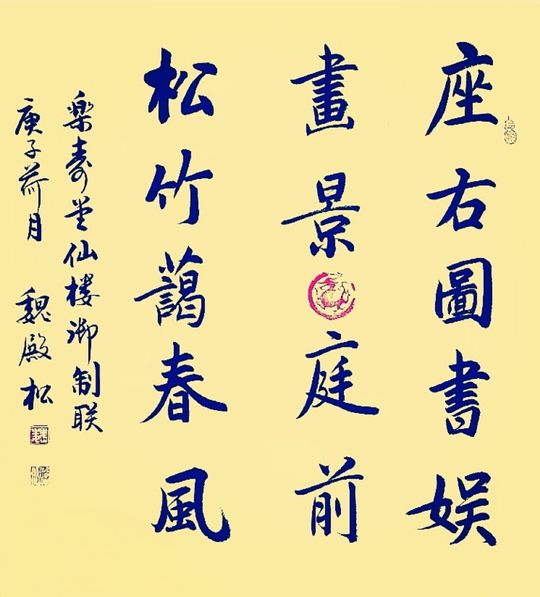 座右圖書娱
畫景庭前
松竹藹春風
楽寿堂仙楼御制联
庚子荷月 魏殿松